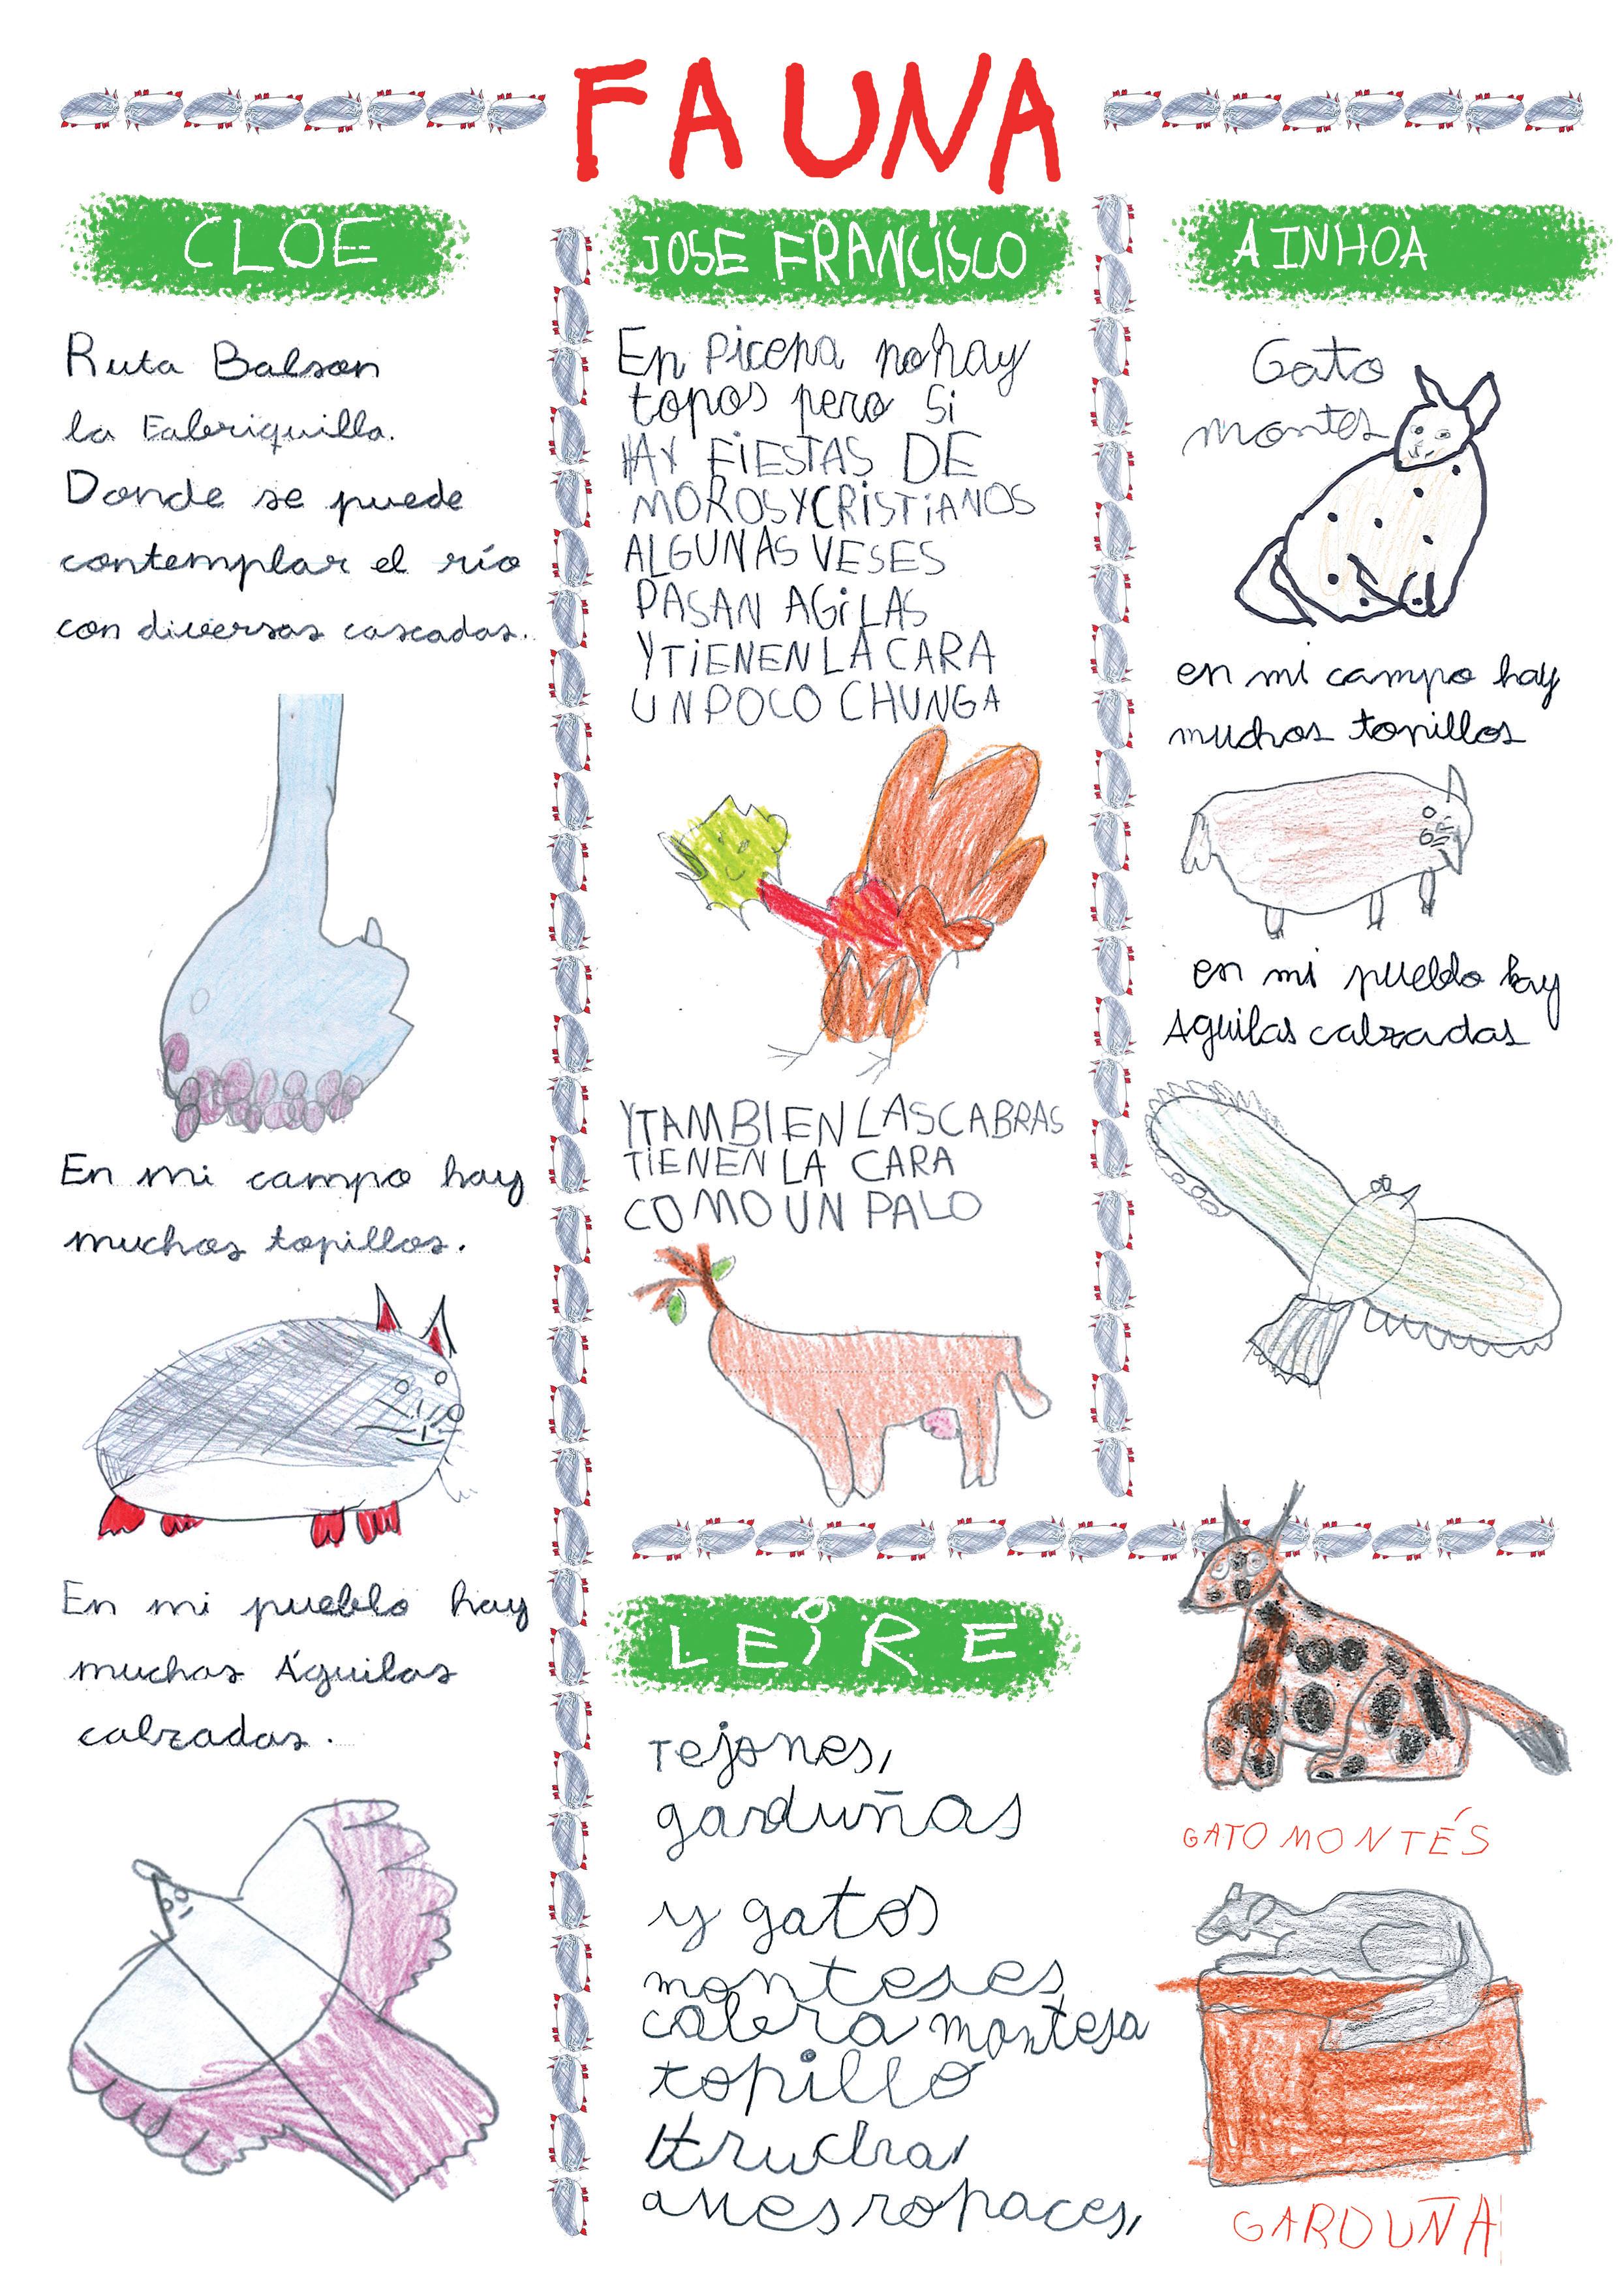 FAUNA
CLOE
Ruta Balson
la Fabriquilla.
Donde se puede
contemplar el río
con diversas cascadas.
En mi campo hay
muchos topillos.
En mi pueblo hay
muchas Águilas
calzadas.
JOSE FRANCISCO
En Picena no hay
topos pero si
HAY FIESTAS DE
MOROS Y CRISTIANOS
ALGUNAS VESES
PASAN AGILAS
Y TIENEN LA CARA
UN POCO CHUNGA
Y TAMBIEN LAS CABRAS
TIENEN LA CARA
COMO UN PALO
AINHOA
Gato
montes
en mi campo hay
muchos topillos
en mi pueblo hay
Aguilas calzadas
LEIRE
Tejones,
garduñas
y gatos
monteses
cabra montesa
topillo
trucha,
aves ropaces,
GATO MONTÉS
GARDUÑA